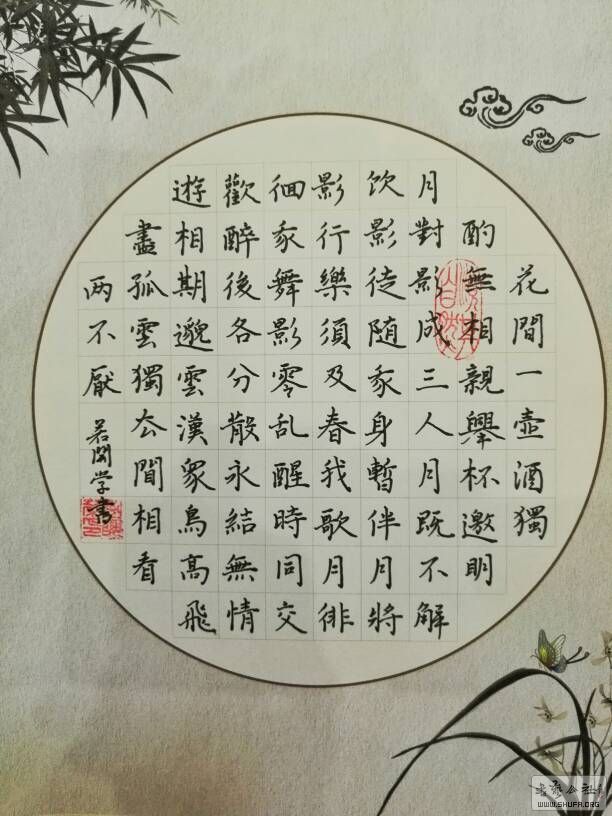 花間一壺酒獨
酌無相親舉杯邀明
月對影成三人月既不解
饮影徒随我身暫伴月將
影行樂須及春我歌月徘
徊我舞影零乱醒時同交
歡醉後各分散永結無情
遊相期邈雲漢衆鳥高飛
盡孤雲獨厺閒相看
两不厭
若闲学書
WWW.SHUFA.ORG